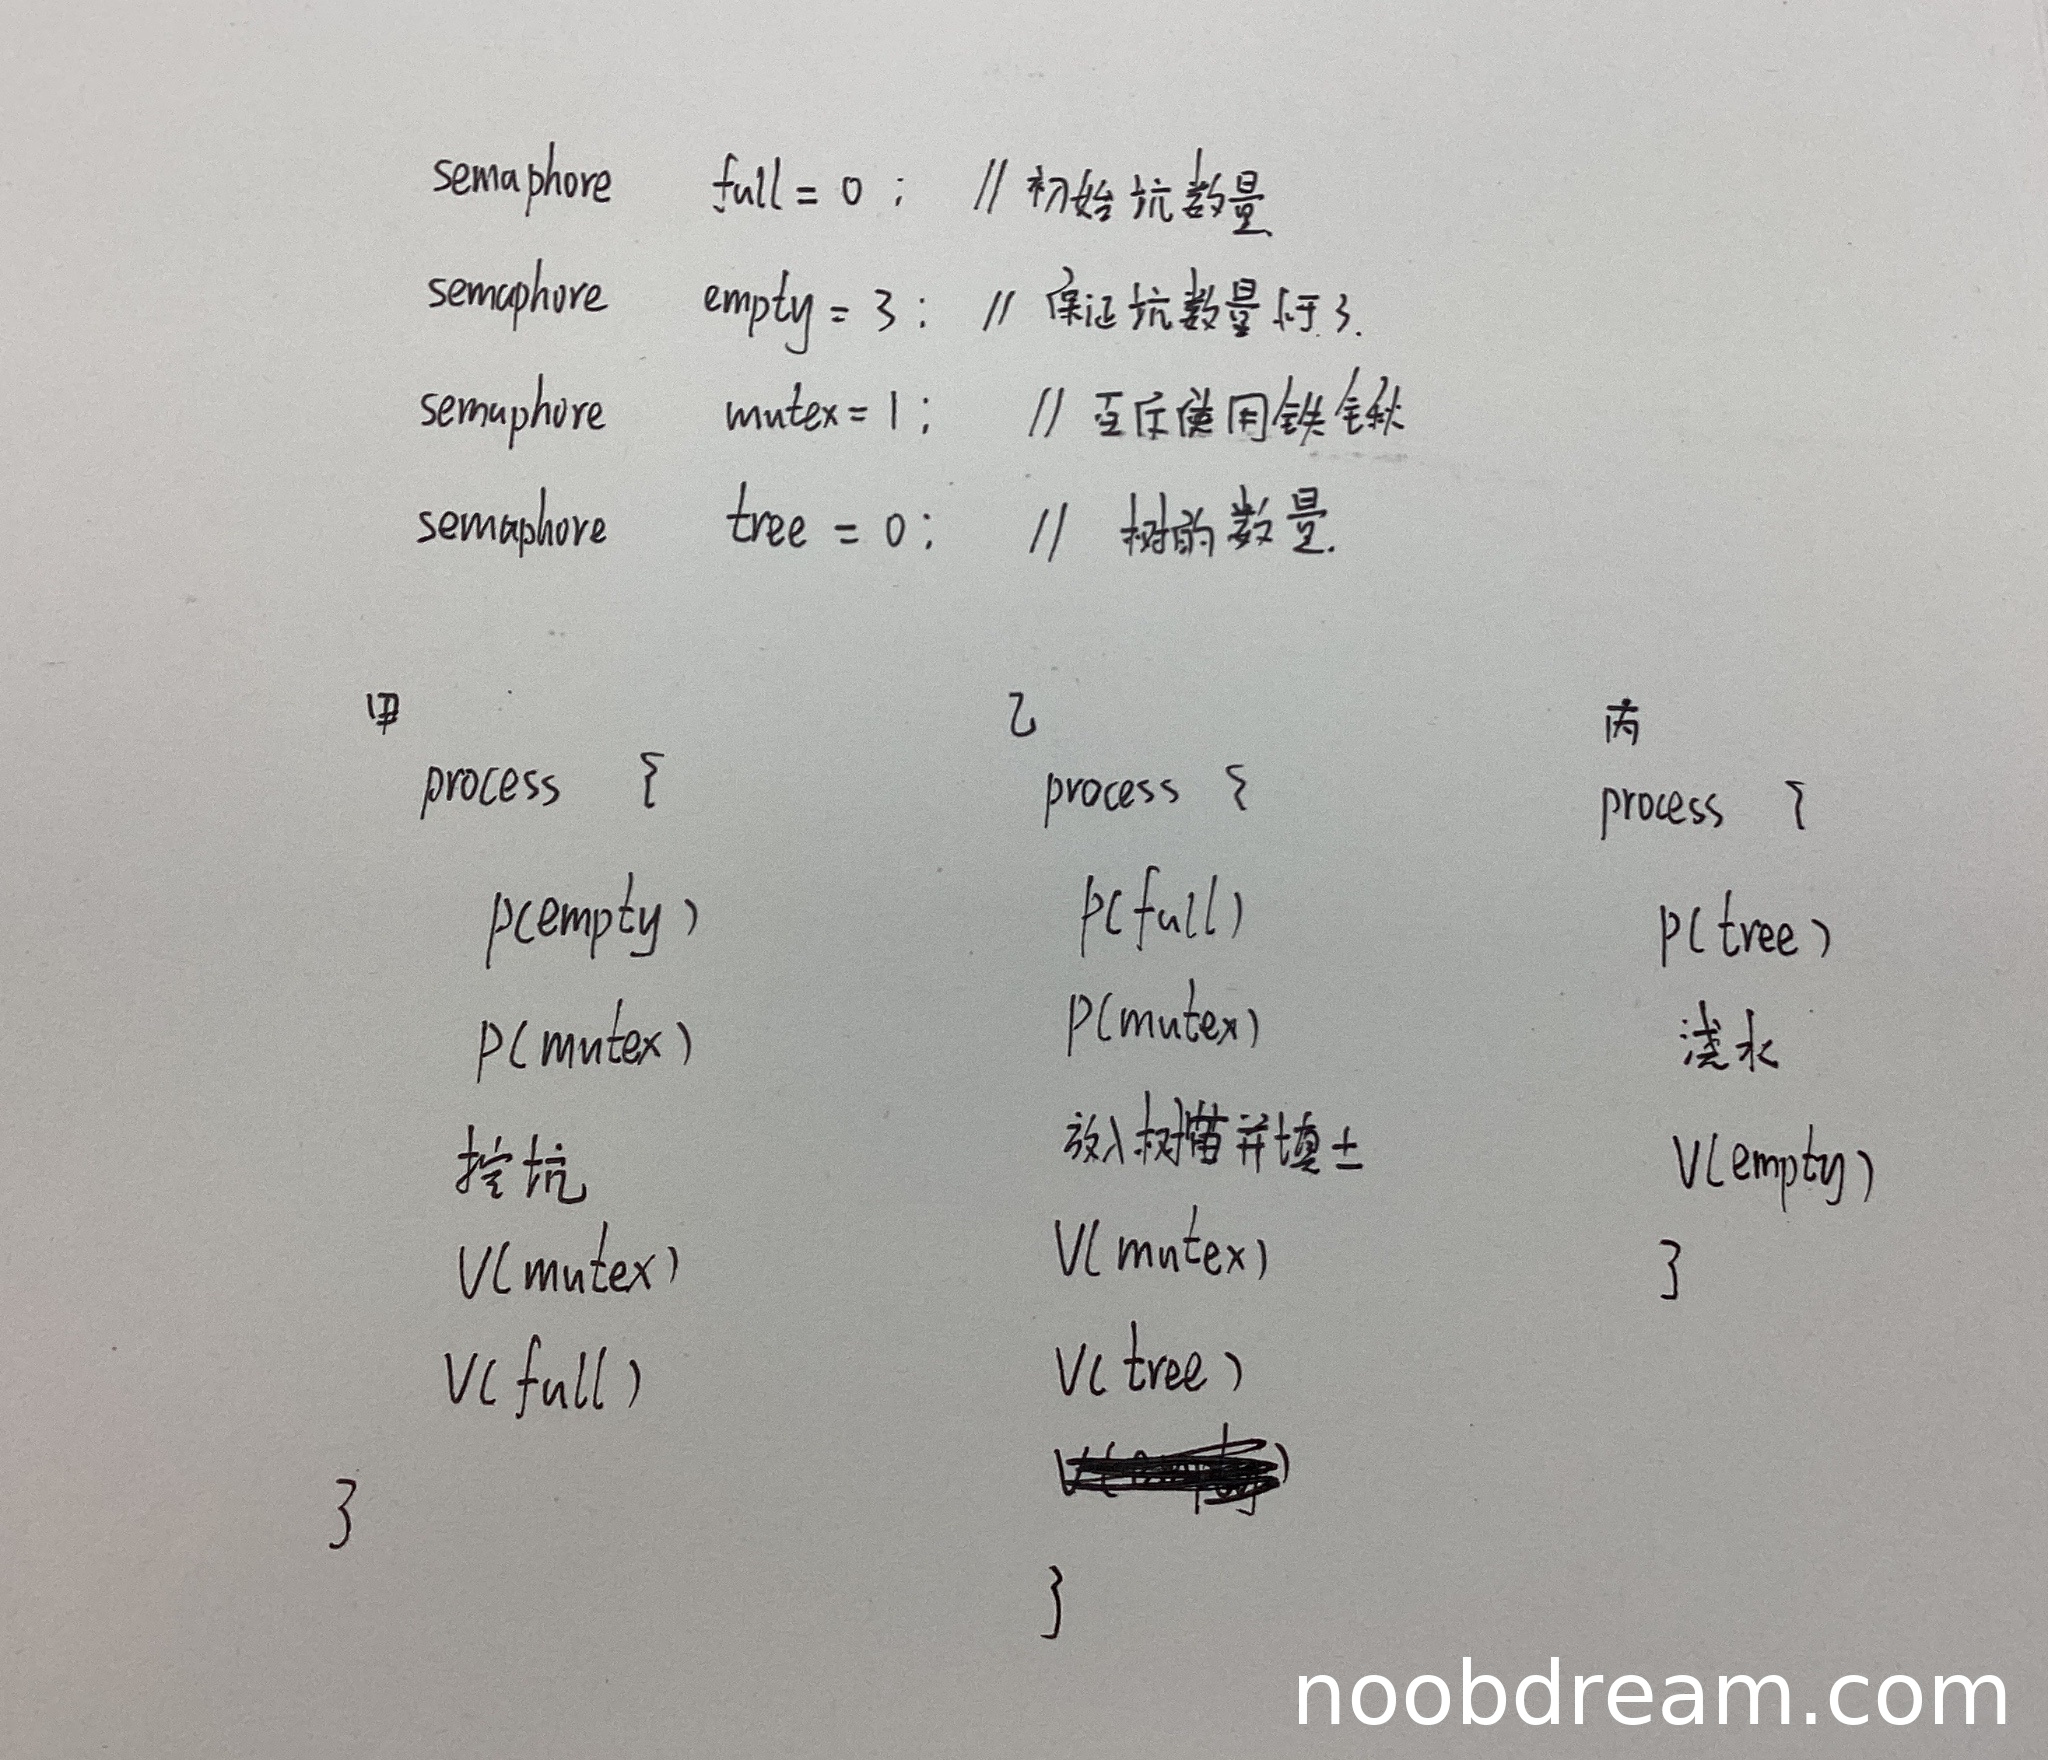 semaphore full = 0 ; // 初始坑数量
semaphore empty = 3 ; // 保证坑数量 3.
semaphore mutex = 1 ; // 互斥使用铁锹
semaphore tree = 0 ; // 树的数量.
甲
process {
P(empty)
P(mutex)
挖坑
V(mutex)
V(full)
}
乙
process {
P(full)
P(mutex)
放入树苗并填土
V(mutex)
V(tree)
}
丙
process {
P(tree)
浇水
V(empty)
}
noobdream.com